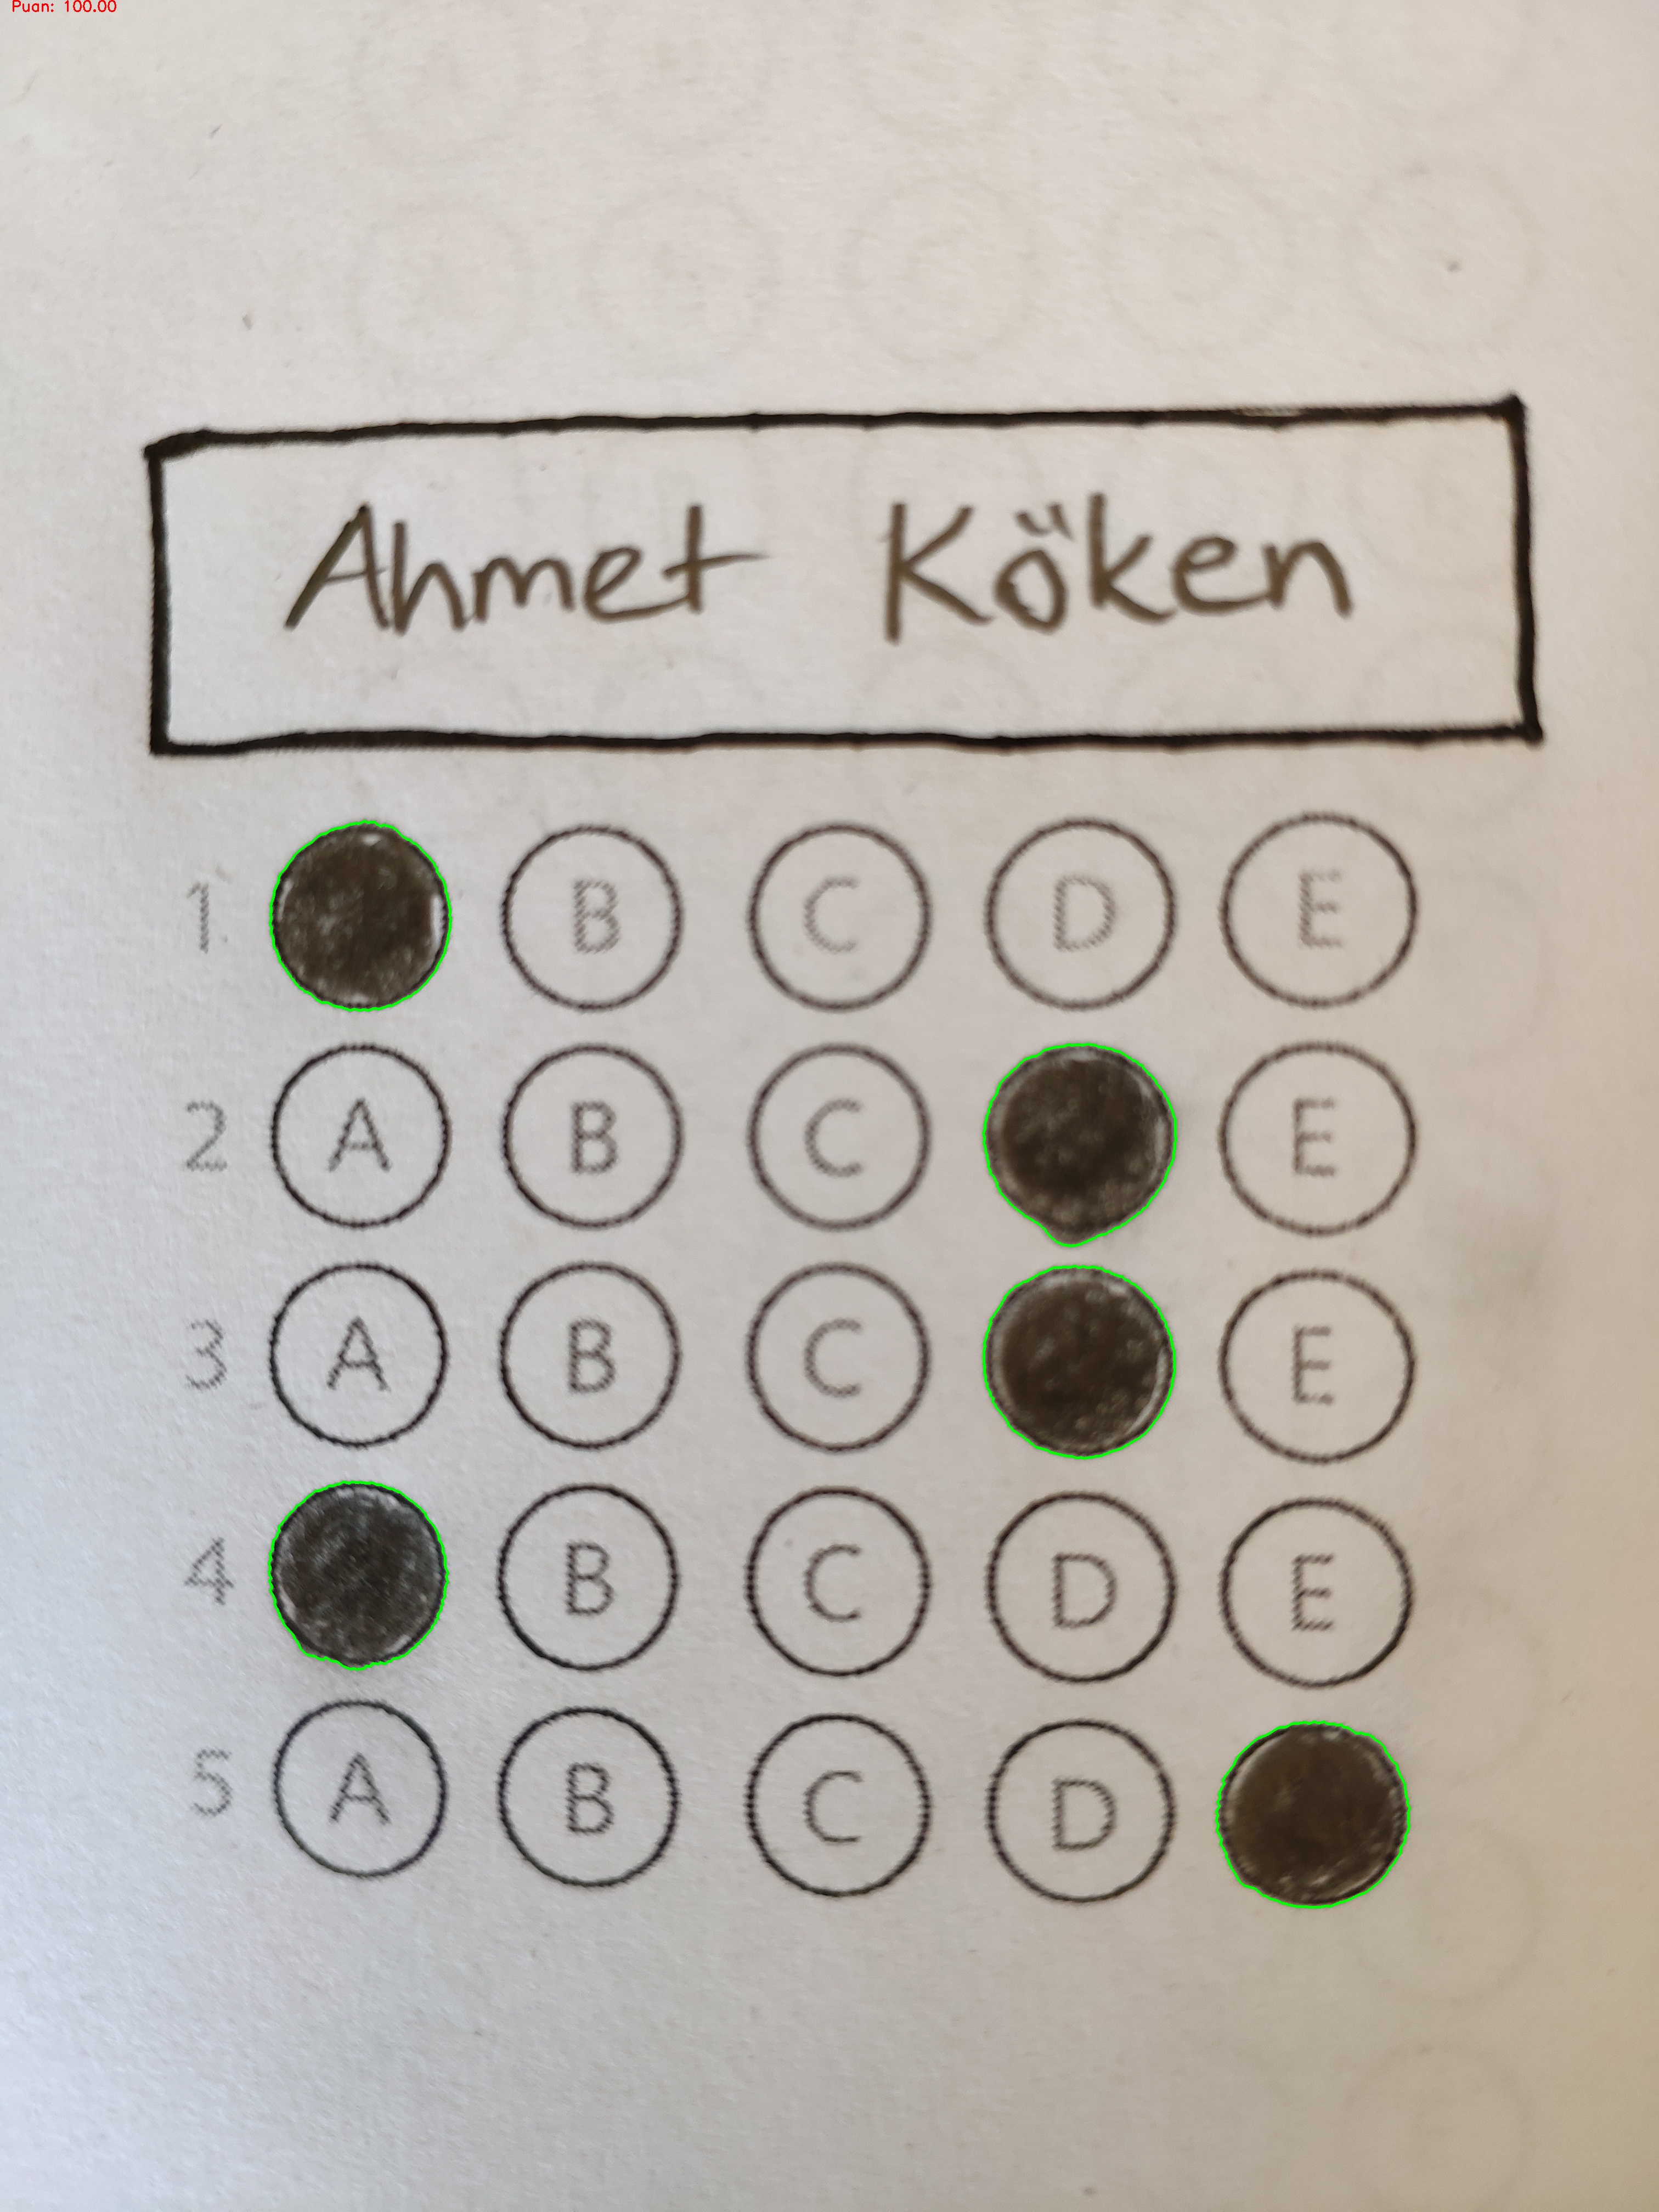 Puan: 100.00
Ahmet Köken
1 B C D E
2 A B C E
3 A B C E
4 B C D E
5 A B C D